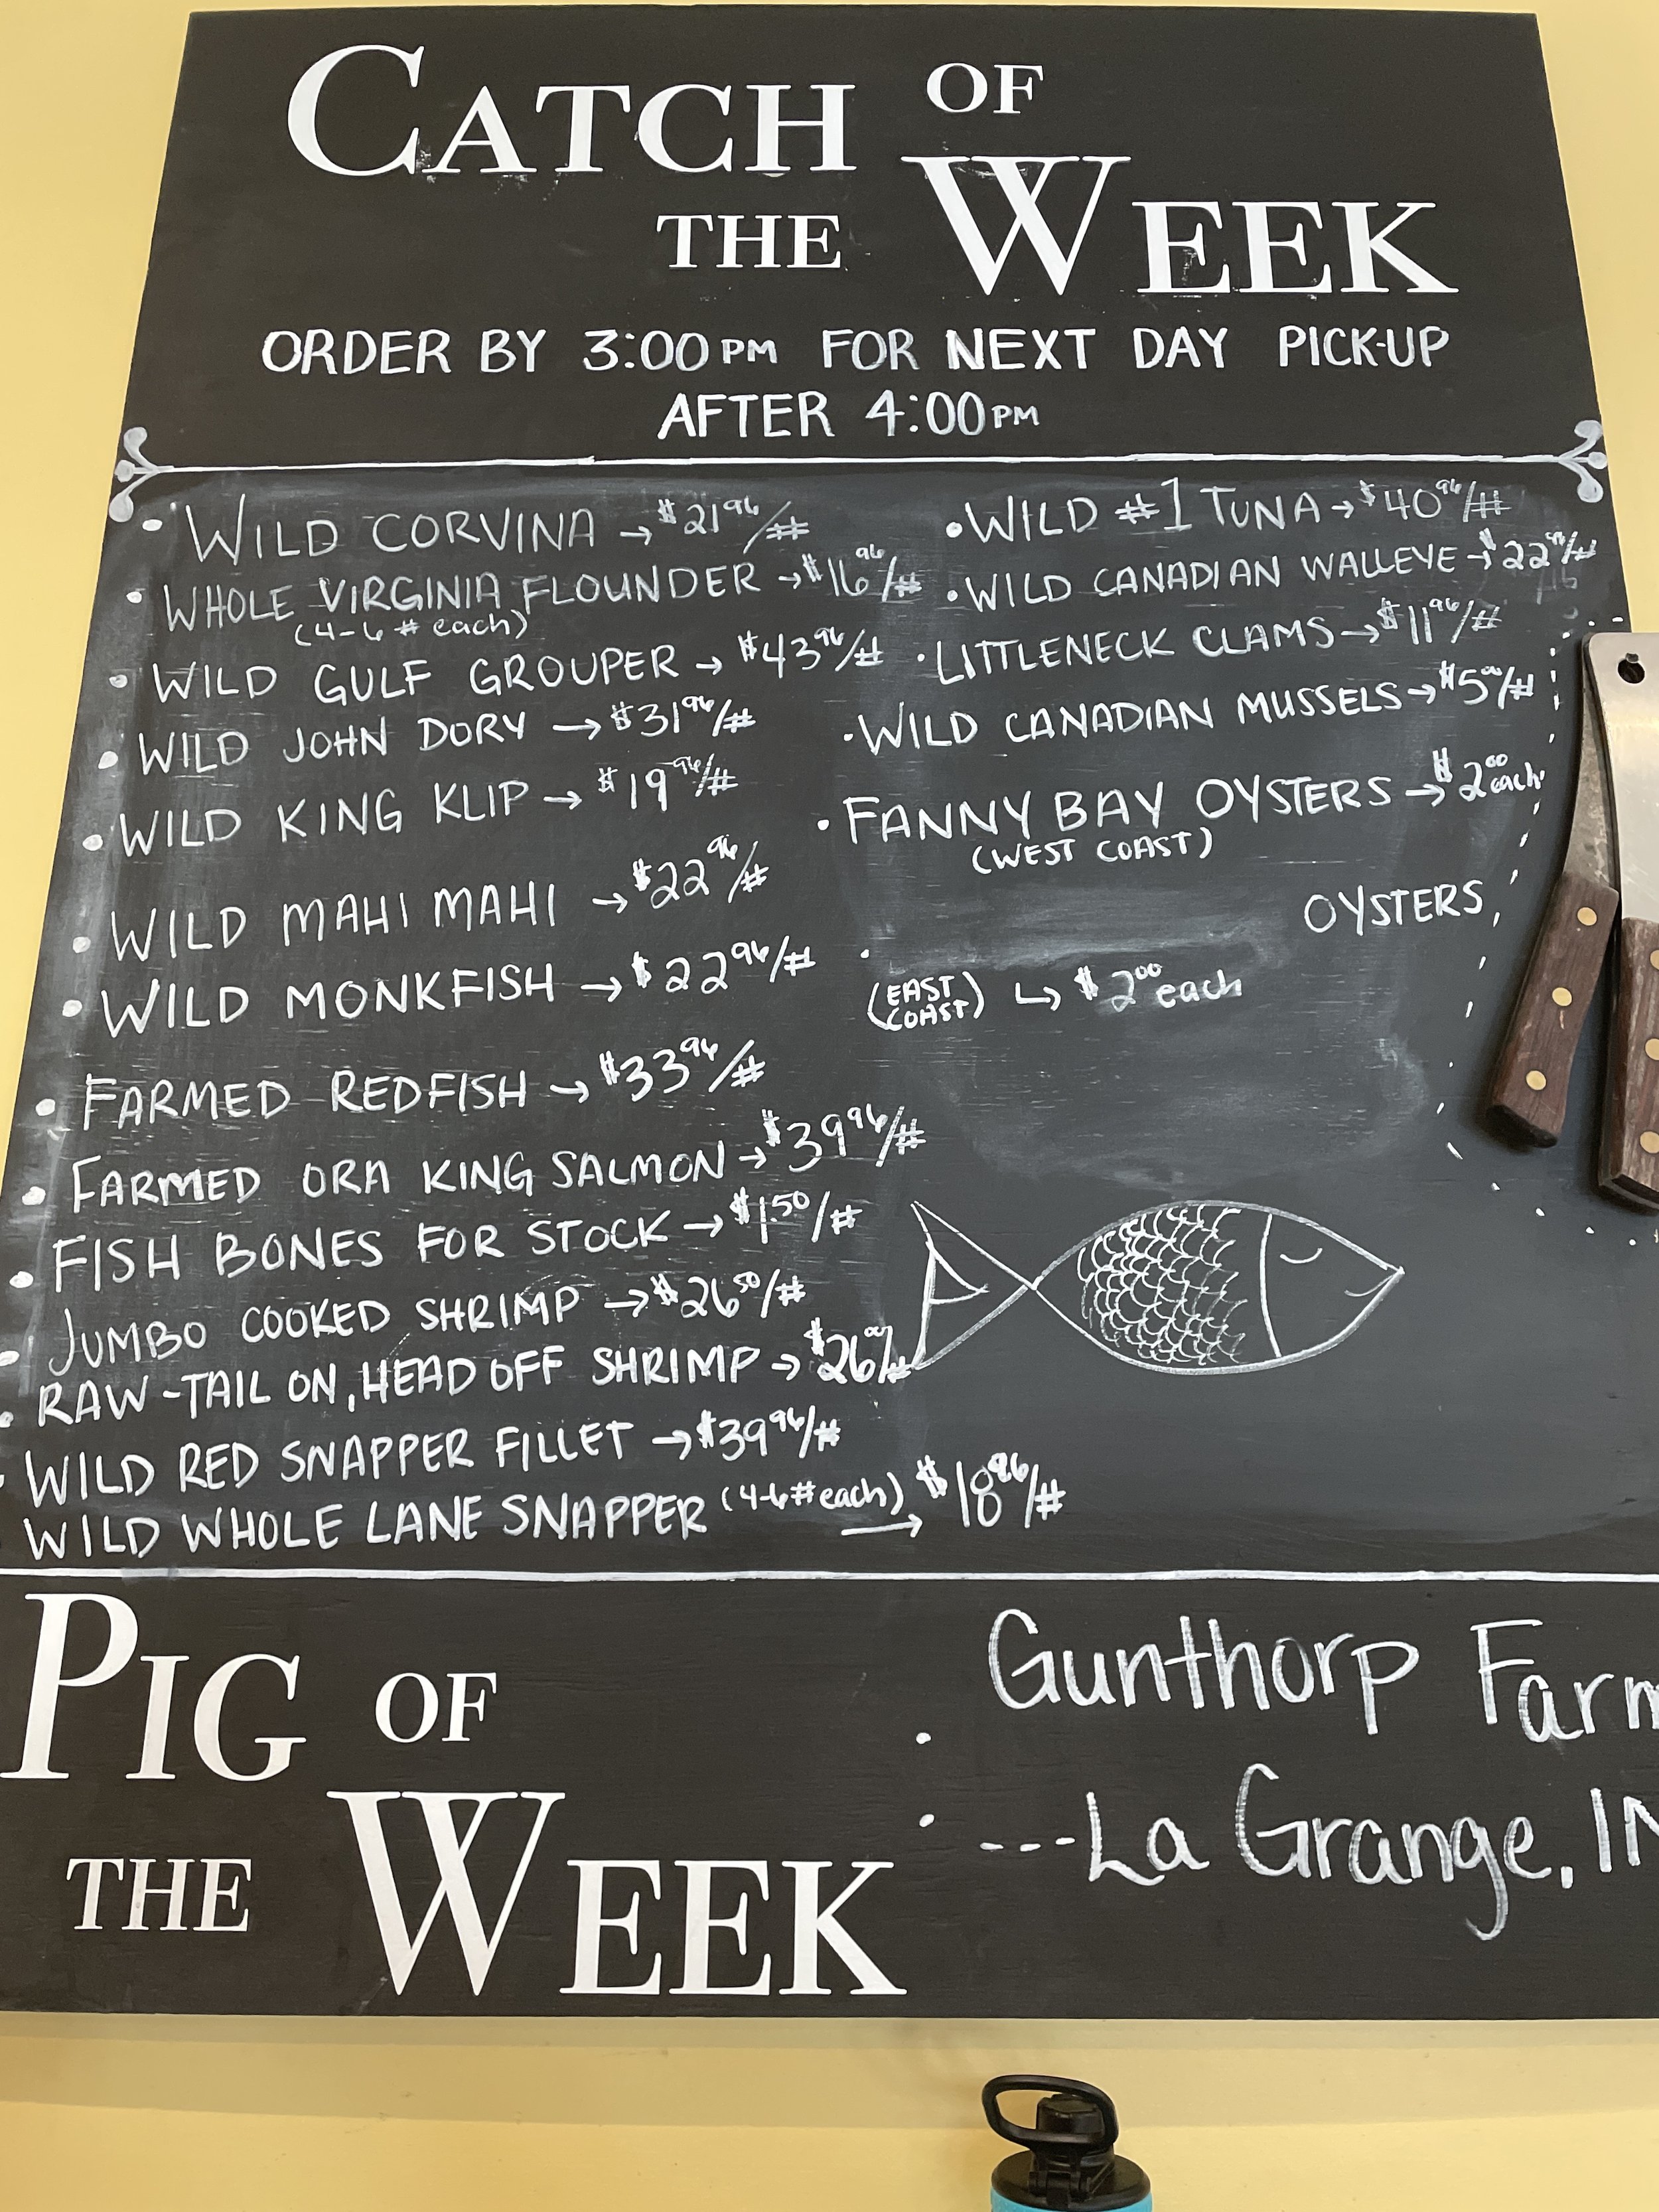 CATCH OF
THE WEEK
ORDER BY 3:00PM FOR NEXT DAY PICK-UP
AFTER 4:00PM
• WILD CORVINA → $21⁹⁶/#
• WHOLE VIRGINIA FLOUNDER → $16⁹⁶/#
(4-6 # each)
• WILD GULF GROUPER → $43⁹⁶/#
• WILD JOHN DORY → $31⁹⁶/#
• WILD KING KLIP → $19⁹⁶/#
• WILD MAHI MAHI → $22⁹⁶/#
• WILD MONKFISH → $22⁹⁶/#
• FARMED REDFISH → $33⁹⁶/#
• FARMED ORA KING SALMON → $39⁹⁶/#
• FISH BONES FOR STOCK → $1.⁵⁰/#
• JUMBO COOKED SHRIMP → $26⁵⁰/#
• RAW-TAIL ON, HEAD OFF SHRIMP → $26⁰⁰/#
• WILD RED SNAPPER FILLET → $39⁹⁶/#
WILD WHOLE LANE SNAPPER (4-6# each) → $18⁹⁶/#
• WILD #1 TUNA → $40⁹⁶/#
• WILD CANADIAN WALLEYE → $22⁹⁶/#
• LITTLENECK CLAMS → $11⁹⁶/#
• WILD CANADIAN MUSSELS → $5⁰⁰/#
• FANNY BAY OYSTERS → $2⁰⁰ each
(WEST COAST)
• OYSTERS
(EAST COAST) ↳ $2⁰⁰ each
PIG OF
THE WEEK
• Gunthorp Farm
• ---La Grange, IN